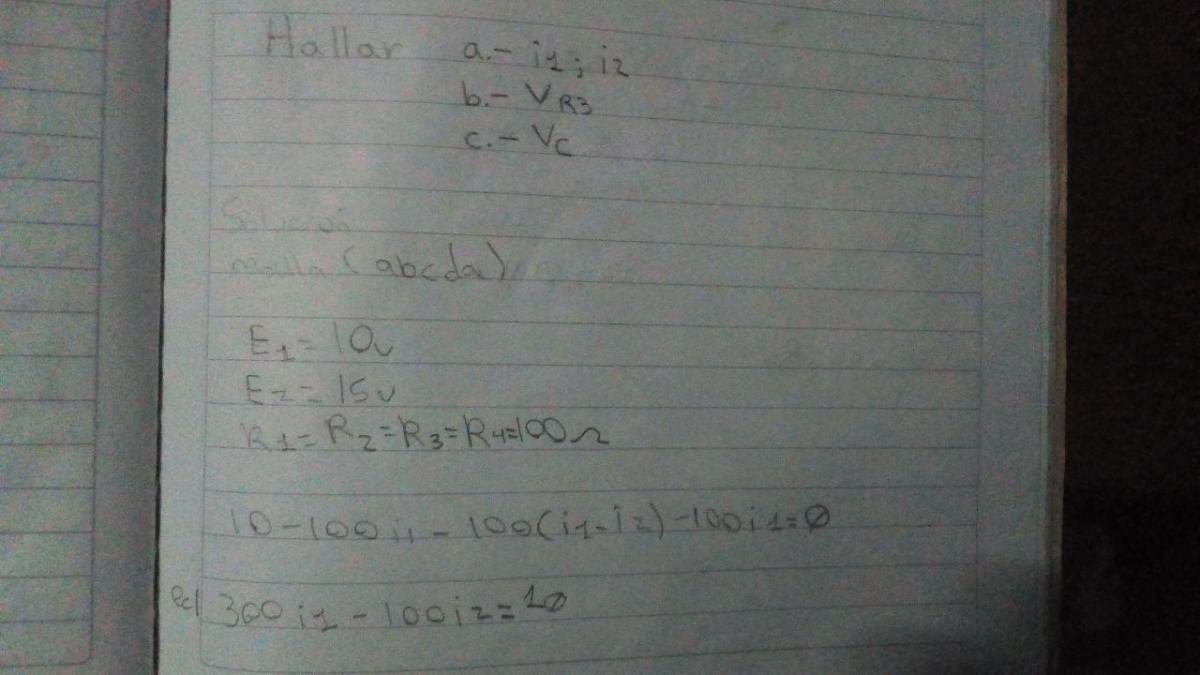 Hallar a.- i1; i2
b.- VR3
c.- Vc
Solución
malla (abcda)
E1 = 10v
E2 = 15v
R1 = R2 = R3 = R4 = 100Ω
10 - 100 i1 - 100(i1 - i2) - 100 i1 = Ø
ec1 300 i1 - 100 i2 = 1Ø